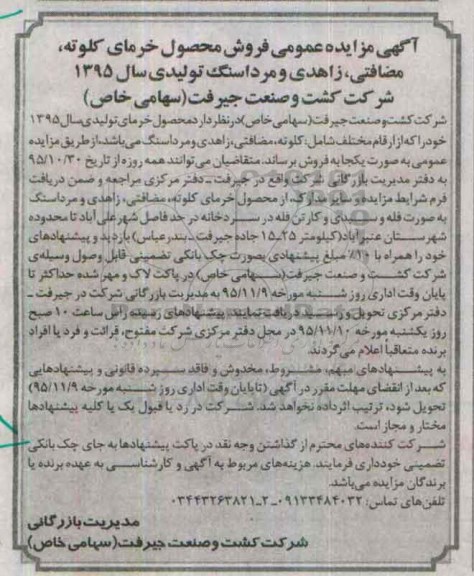 آگهی مزایده عمومی فروش محصول خرمای کلوته،
مضافتی، زاهدی و مرداسنگ تولیدی سال ۱۳۹۵
شرکت کشت و صنعت جیرفت (سهامی خاص)
شرکت کشت و صنعت جیرفت (سهامی خاص) در نظر دارد محصول خرمای تولیدی سال ۱۳۹۵
خود را که از ارقام مختلف شامل: کلوته، مضافتی، زاهدی و مرداسنگ می‌باشد، از طریق مزایده
عمومی به صورت یکجا به فروش برساند. متقاضیان می‌توانند همه روزه از تاریخ ۹۵/۱۰/۳۰
به دفتر مدیریت بازرگانی شرکت واقع در جیرفت ـ دفتر مرکزی مراجعه و ضمن دریافت
فرم شرایط مزایده و سایر مدارک، از محصول خرمای کلوته، مضافتی، زاهدی و مرداسنگ
به صورت فله و سبدی و کارتن فله در سردخانه در حد فاصل شهر علی آباد تا محدوده
شهرستان عنبرآباد (کیلومتر ۲۵ـ۱۵ جاده جیرفت ـ بندرعباس) بازدید و پیشنهادهای
خود را همراه با ۱۰٪ مبلغ پیشنهادی بصورت چک بانکی تضمینی قابل وصول وسیله‌ی
شرکت کشت و صنعت جیرفت (سهامی خاص) در پاکت لاک و مهر شده حداکثر تا
پایان وقت اداری روز شنبه مورخه ۹۵/۱۱/۹ به مدیریت بازرگانی شرکت در جیرفت ـ
دفتر مرکزی تحویل و رسید دریافت نمایند. پیشنهادهای رسیده راس ساعت ۱۰ صبح
روز یکشنبه مورخه ۹۵/۱۱/۱۰ در محل دفتر مرکزی شرکت مفتوح، قرائت و فرد یا افراد
برنده متعاقباً اعلام می‌گردند.
به پیشنهادهای مبهم، مشروط، مخدوش و فاقد سپرده قانونی و پیشنهادهایی
که بعد از انقضای مهلت مقرر در آگهی (تا پایان وقت اداری روز شنبه مورخه ۹۵/۱۱/۹)
تحویل شود، ترتیب اثر داده نخواهد شد. شرکت در رد یا قبول یک یا کلیه پیشنهادها
مختار و مجاز است.
شرکت کننده‌های محترم از گذاشتن وجه نقد در پاکت پیشنهادها به جای چک بانکی
تضمینی خودداری فرمایند. هزینه‌های مربوط به آگهی و کارشناسی به عهده برنده یا
برندگان مزایده می‌باشد.
تلفن‌های تماس: ۰۹۱۳۳۴۸۴۰۳۲ـ۲ـ۰۳۴۴۳۲۶۳۸۲۱
مدیریت بازرگانی
شرکت کشت و صنعت جیرفت (سهامی خاص)